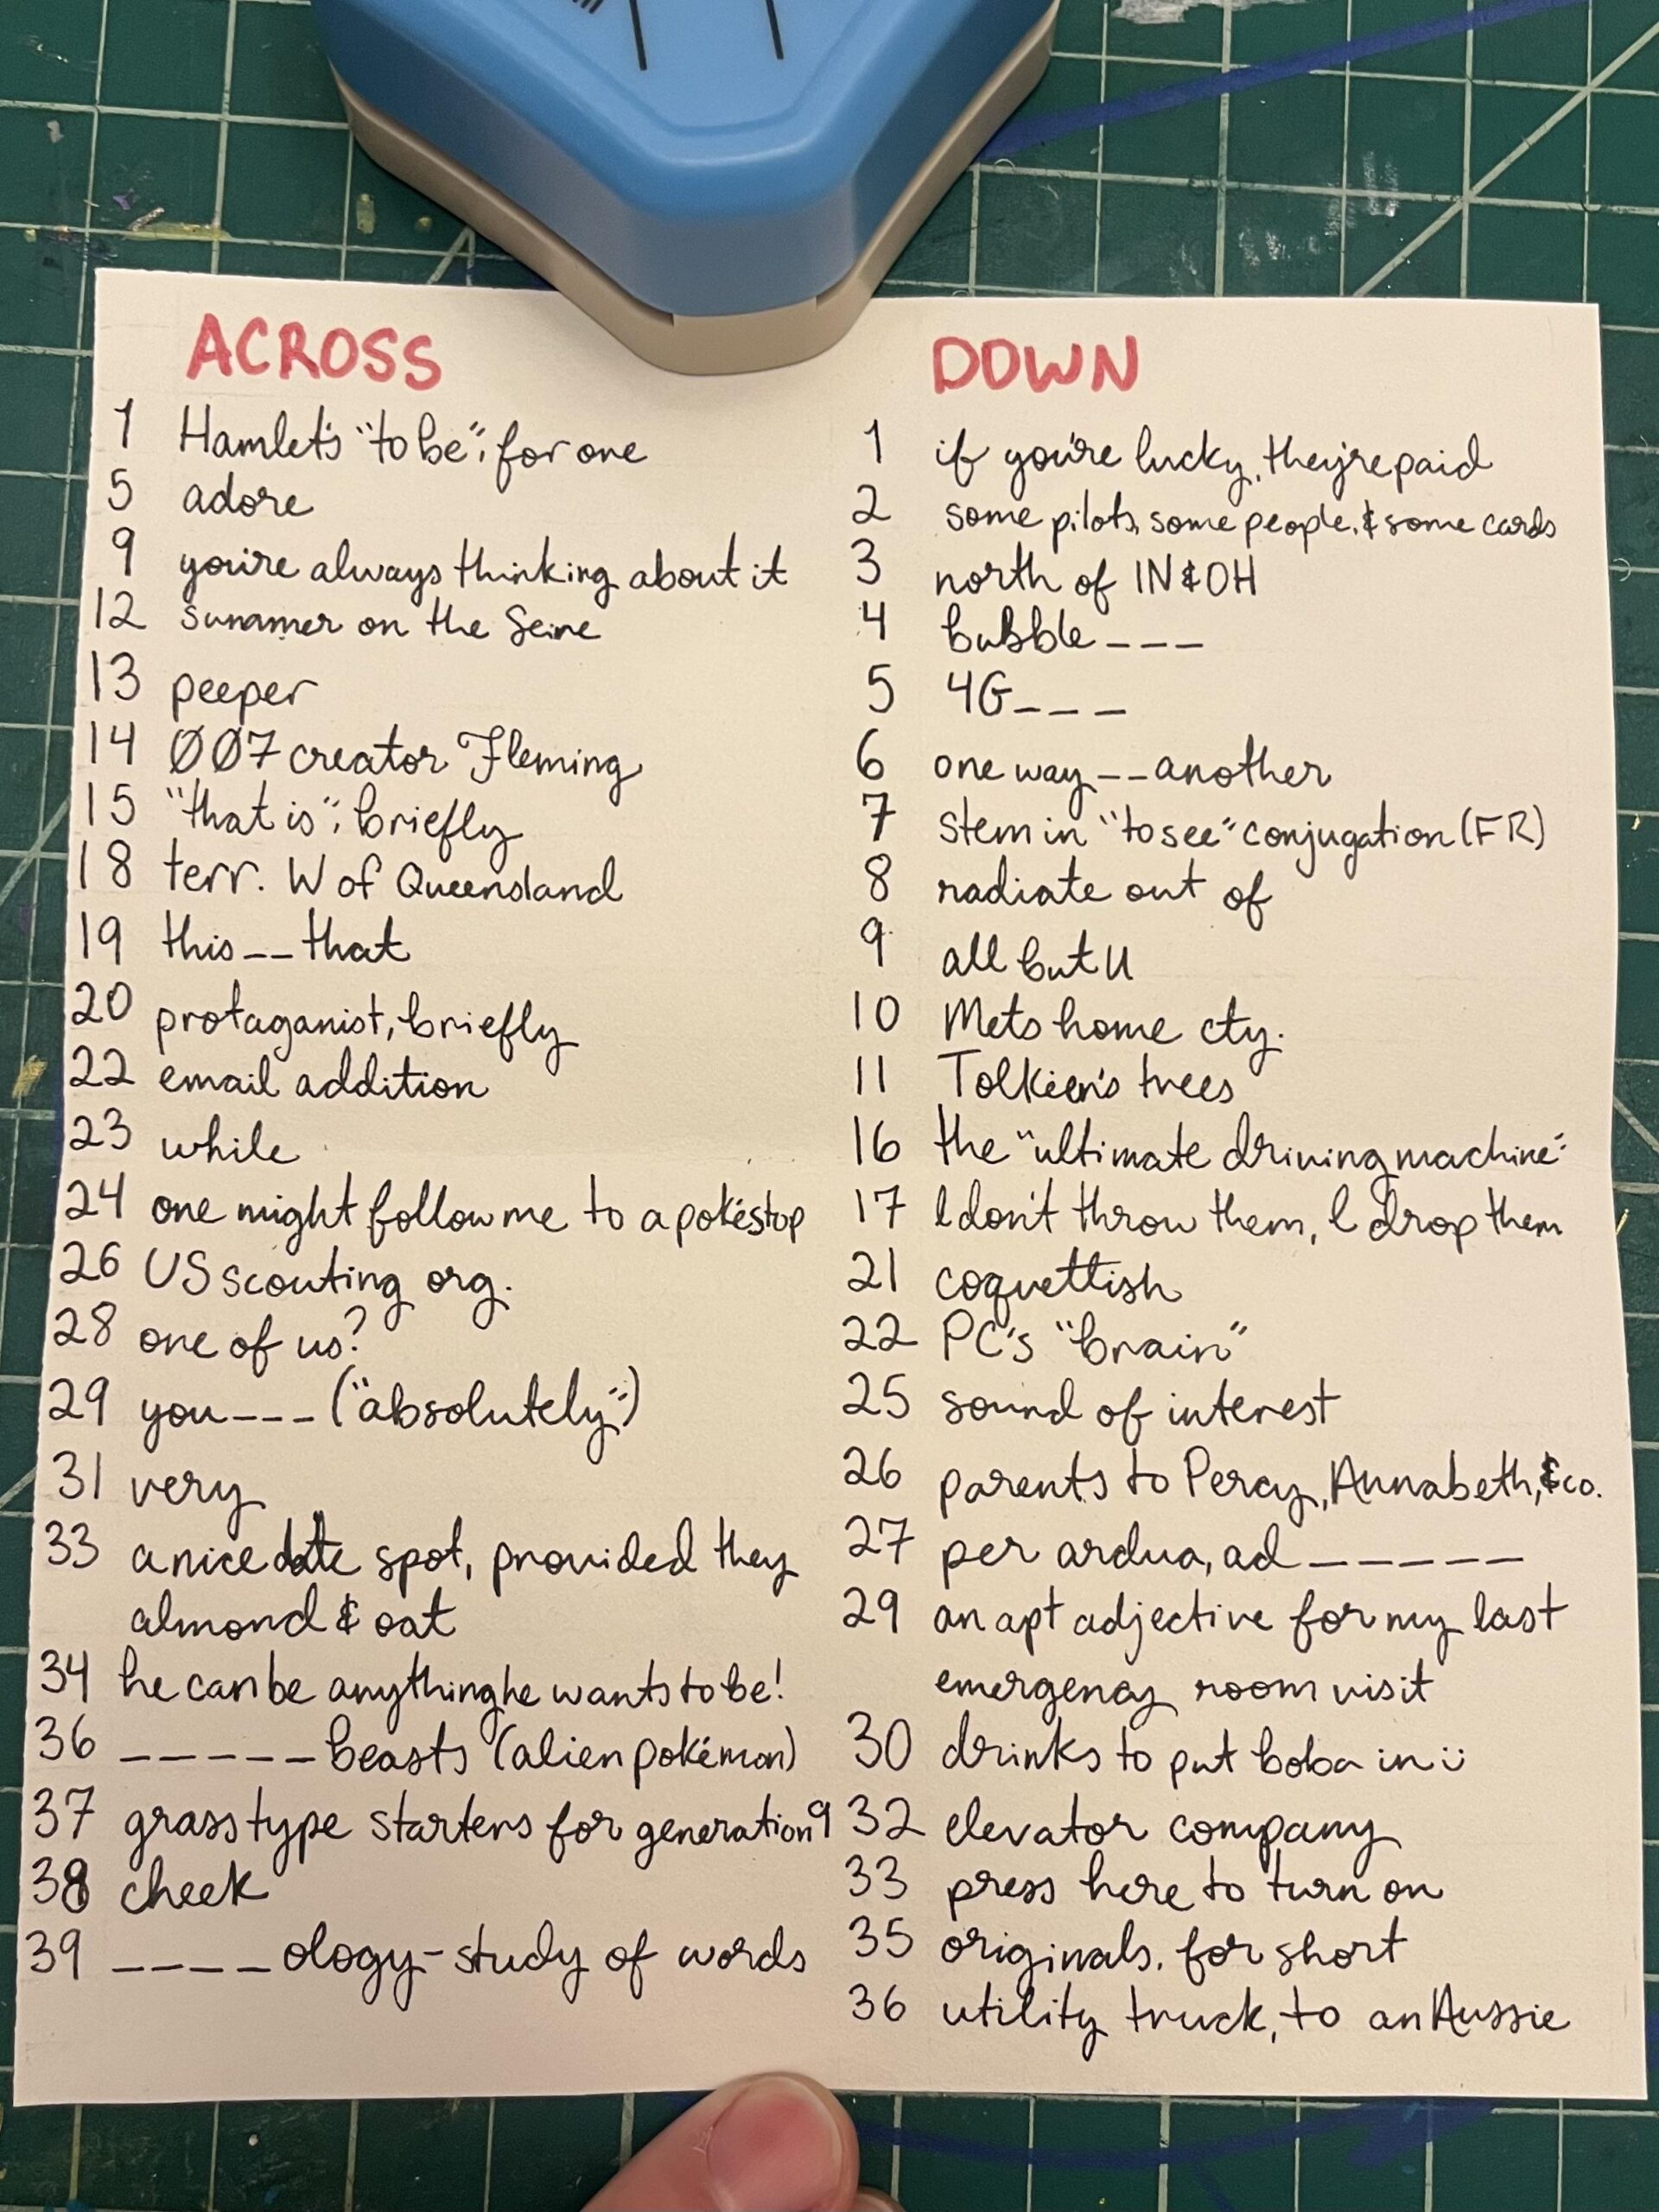 ACROSS
1 Hamlet's "to be", for one
5 adore
9 you're always thinking about it
12 summer on the Seine
13 peeper
14 ØØ7 creator Fleming
15 "that is", briefly
18 terr. W of Queensland
19 this__that
20 protaganist, briefly
22 email addition
23 while
24 one might follow me to a pokéstop
26 US scouting org.
28 one of us?
29 you___("absolutely")
31 very
33 a nice date spot, provided they
almond & oat
34 he can be anything he wants to be!
36 _____beasts (alien pokémon)
37 grass type starters for generation 9
38 cheek
39 ____ology-study of words
DOWN
1 if you're lucky, they're paid
2 some pilots, some people, & some cards
3 north of IN & OH
4 bubble___
5 4G___
6 one way__another
7 stem in "to see" conjugation (FR)
8 radiate out of
9 all but U
10 Mets home cty.
11 Tolkien's trees
16 the "ultimate driving machine"
17 I don't throw them, I drop them
21 coquettish
22 PC's "brain"
25 sound of interest
26 parents to Percy, Annabeth, & co.
27 per ardua, ad _____
29 an apt adjective for my last
emergency room visit
30 drinks to put boba in :)
32 elevator company
33 press here to turn on
35 originals, for short
36 utility truck, to an Aussie